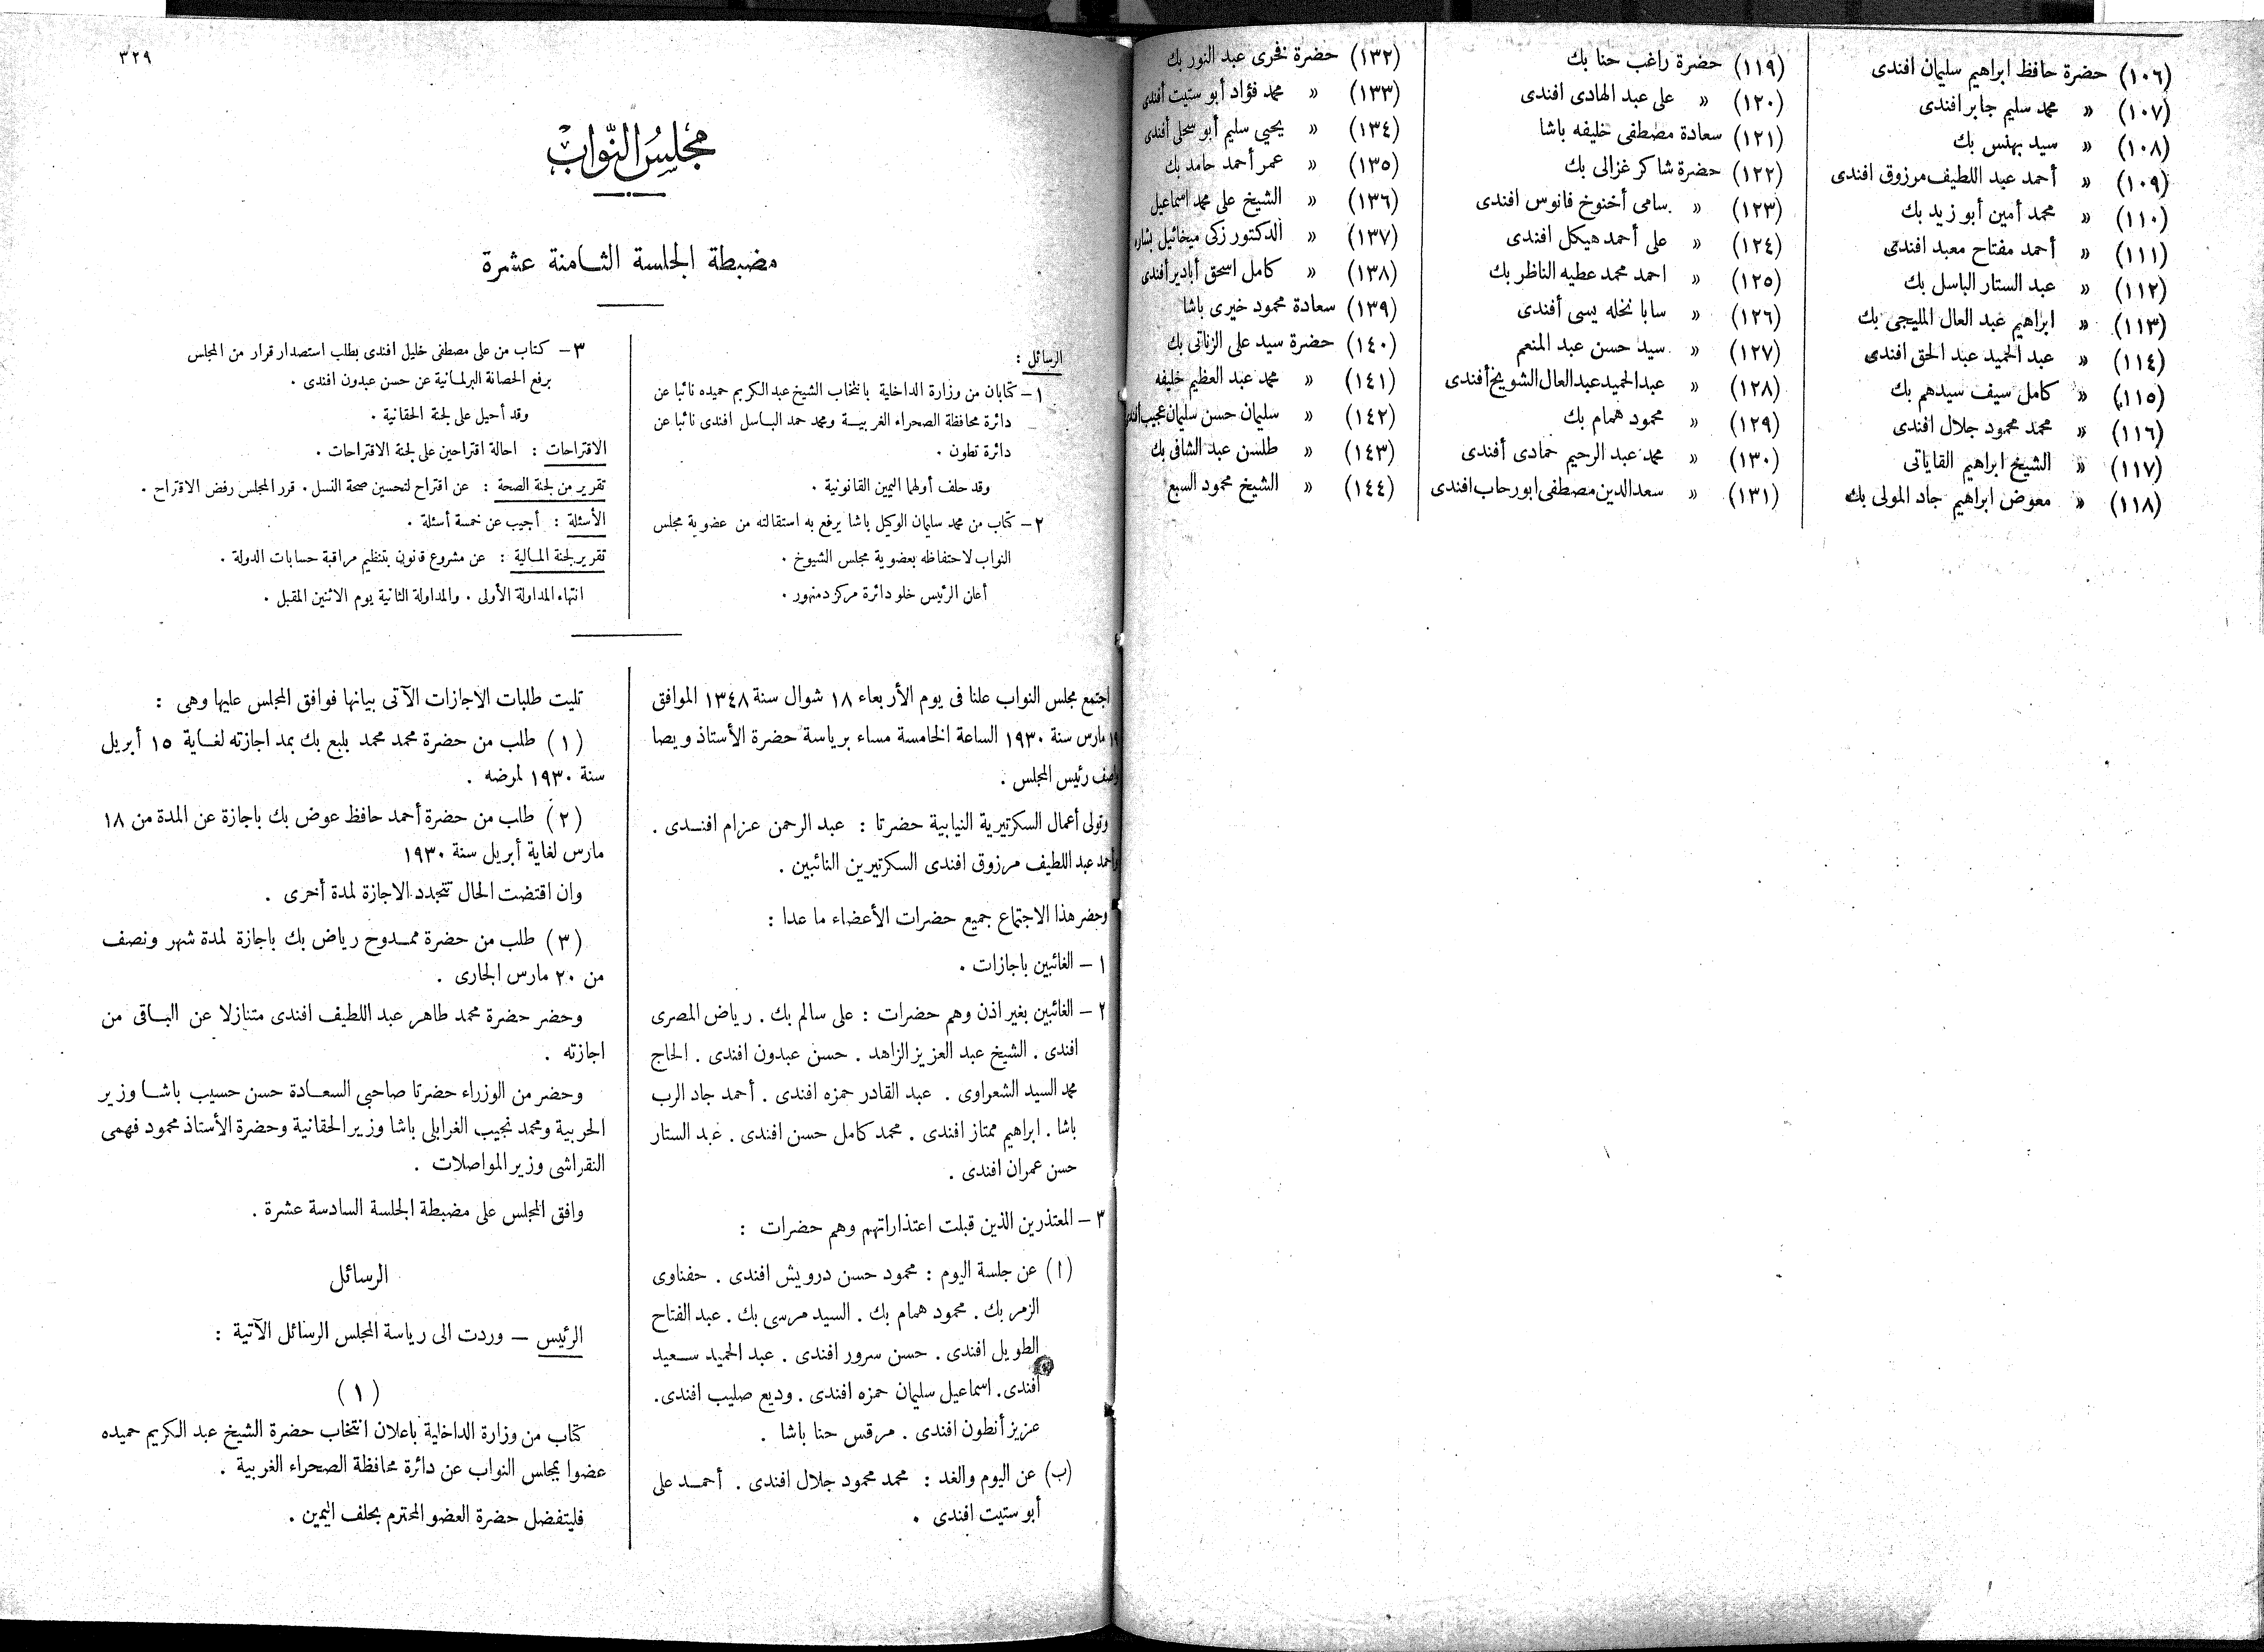 (١٠٦) حضرة حافظ ابراهيم سليمان افندى
(١٠٧) » محمد سليم جابر افندى
(١٠٨) » سيد بهنس بك
(١٠٩) » أحمد عبد اللطيف مرزوق افندى
(١١٠) » محمد أمين أبو زيد بك
(١١١) » أحمد مفتاح معبد افندى
(١١٢) » عبد الستار الباسل بك
(١١٣) » ابراهيم عبد العال المليجى بك
(١١٤) » عبد الحميد عبد الحق افندى
(١١٥) » كامل سيف سيدهم بك
(١١٦) » محمد محمود جلال افندى
(١١٧) » الشيخ ابراهيم القاياتى
(١١٨) » معوض ابراهيم جاد المولى بك
(١١٩) حضرة راغب حنا بك
(١٢٠) » على عبد الهادى افندى
(١٢١) سعادة مصطفى خليفه باشا
(١٢٢) حضرة شاكر غزالى بك
(١٢٣) » سامى أخنوخ فانوس افندى
(١٢٤) » على أحمد هيكل افندى
(١٢٥) » احمد محمد عطيه الناظر بك
(١٢٦) » سابا نخله يسى أفندى
(١٢٧) » سيد حسن عبد المنعم
(١٢٨) » عبد الحميد عبد العال الشويخ أفندى
(١٢٩) » محمود همام بك
(١٣٠) » محمد عبد الرحيم حمادى أفندى
(١٣١) » سعد الدين مصطفى ابو رحاب افندى
(١٣٢) حضرة فخرى عبد النور بك
(١٣٣) » محمد فؤاد أبو ستيت أفندى
(١٣٤) » يحيي سليم أبو سحلى أفندى
(١٣٥) » عمر أحمد حامد بك
(١٣٦) » الشيخ على محمد اسماعيل
(١٣٧) » الدكتور زكى ميخائيل بشاره
(١٣٨) » كامل اسحق أبادير أفندى
(١٣٩) سعادة محمود خيرى باشا
(١٤٠) حضرة سيد على الزناتى بك
(١٤١) » محمد عبد العظيم خليفه
(١٤٢) » سليمان حسن سليمان عجيب
(١٤٣) » طلسن عبد الشافى بك
(١٤٤) » الشيخ محمود السبع
٣٢٩
مجلس النواب
مضبطة الجلسة الثامنة عشرة
الرسائل :
١ – كتابان من وزارة الداخلية بانتخاب الشيخ عبد الكريم حميده نائبا عن
دائرة محافظة الصحراء الغربية ومحمد حمد الباسل افندى نائبا عن
دائرة تطون .
وقد حلف أولهما اليمين القانونية .
٢ – كتاب من محمد سليمان الوكيل باشا يرفع به استقالته من عضوية مجلس
النواب لاحتفاظه بعضوية مجلس الشيوخ .
أعلن الرئيس خلو دائرة مركز دمنهور .
٣ – كتاب من على مصطفى خليل افندى بطلب استصدار قرار من المجلس
برفع الحصانة البرلمانية عن حسن عبدون افندى .
وقد أحيل على لجنة الحقانية .
الاقتراحات : احالة اقتراحين على لجنة الاقتراحات .
تقرير من لجنة الصحة : عن اقتراح لتحسين صحة النسل . قرر المجلس رفض الاقتراح .
الأسئلة : أجيب عن خمسة أسئلة .
تقرير لجنة المالية : عن مشروع قانون بتنظيم مراقبة حسابات الدولة .
انتهاء المداولة الأولى . والمداولة الثانية يوم الاثنين المقبل .
اجتمع مجلس النواب علنا فى يوم الأربعاء ١٨ شوال سنة ١٣٤٨ الموافق
١٩ مارس سنة ١٩٣٠ الساعة الخامسة مساء برياسة حضرة الأستاذ ويصا
واصف رئيس المجلس .
وتولى أعمال السكرتيرية النيابية حضرتا : عبد الرحمن عزام افندى .
وأحمد عبد اللطيف مرزوق افندى السكرتيرين النائبين .
وحضر هذا الاجتماع جميع حضرات الأعضاء ما عدا :
١ – الغائبين باجازات .
٢ – الغائبين بغير اذن وهم حضرات : على سالم بك . رياض المصرى
افندى . الشيخ عبد العزيز الزاهد . حسن عبدون افندى . الحاج
محمد السيد الشعراوى . عبد القادر حمزه افندى . أحمد جاد الرب
باشا . ابراهيم ممتاز افندى . محمد كامل حسن افندى . عبد الستار
حسن عمران افندى .
٣ – المعتذرين الذين قبلت اعتذاراتهم وهم حضرات :
(ا) عن جلسة اليوم : محمود حسن درويش افندى . حفناوى
الزمر بك . محمود همام بك . السيد مرسى بك . عبد الفتاح
الطويل افندى . حسن سرور افندى . عبد الحميد سعيد
أفندى . اسماعيل سليمان حمزه افندى . وديع صليب افندى .
عزيز أنطون افندى . مرقس حنا باشا .
(ب) عن اليوم والغد : محمد محمود جلال افندى . أحمد على
أبو ستيت افندى .
تليت طلبات الاجازات الآتى بيانها فوافق المجلس عليها وهى :
(١) طلب من حضرة محمد محمد بلبع بك بمد اجازته لغاية ١٥ أبريل
سنة ١٩٣٠ لمرضه .
(٢) طلب من حضرة أحمد حافظ عوض بك باجازة عن المدة من ١٨
مارس لغاية أبريل سنة ١٩٣٠
وان اقتضت الحال تتجدد الاجازة لمدة أخرى .
(٣) طلب من حضرة ممدوح رياض بك باجازة لمدة شهر ونصف
من ٢٠ مارس الجارى .
وحضر حضرة محمد طاهر عبد اللطيف افندى متنازلا عن الباقى من
اجازته .
وحضر من الوزراء حضرتا صاحبى السعادة حسن حسيب باشا وزير
الحربية ومحمد نجيب الغرابلى باشا وزير الحقانية وحضرة الأستاذ محمود فهمى
النقراشى وزير المواصلات .
وافق المجلس على مضبطة الجلسة السادسة عشرة .
الرسائل
الرئيس – وردت الى رياسة المجلس الرسائل الآتية :
(١)
كتاب من وزارة الداخلية باعلان انتخاب حضرة الشيخ عبد الكريم حميده
عضوا بمجلس النواب عن دائرة محافظة الصحراء الغربية .
فليتفضل حضرة العضو المحترم بحلف اليمين .